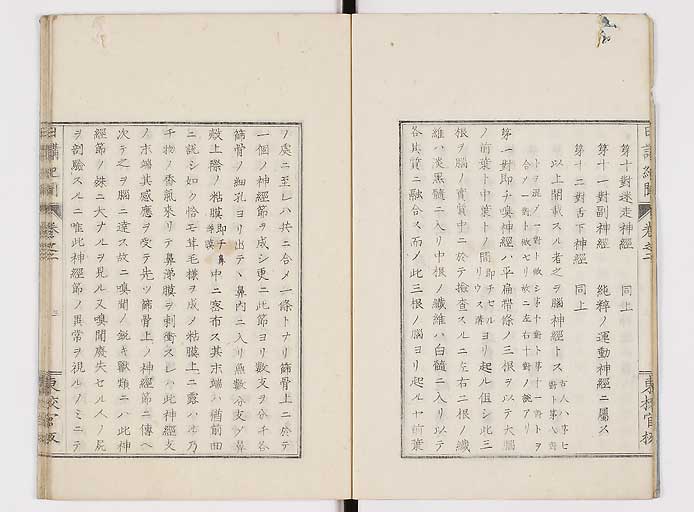 第十對迷走神經　同上
第十一對副神經　純粹ノ運動神經ニ屬ス
第十二對舌下神經　同上
以上開載スル者之ヲ腦神經トス
第一對即チ嗅神經ハ平扁帶條ノ三根ヲ以テ大腦
ノ前葉ト中葉トノ間ヨリ起ル但シ此三
根ヲ腦ノ實質中ニ於テ檢査スルニ左右二根ノ纖
維ハ淡黑髓ニ入リ中根ノ纖維ハ白髓ニ入リ以テ
各其質ニ融合ス而ノ此三根ノ腦ヨリ起ルヤ前葉
ノ處ニ至レハ共ニ合メ一條トナリ篩骨上ニ於テ
一個ノ神經節ヲ成シ更ニ此節ヨリ數支ヲ分チ各
篩骨ノ細孔ヨリ出テヽ鼻內ニ入リ無數分支メ鼻
殼上際ノ粘膜即チ鼻涕膜中ニ密布ス其末端ハ猶前面
ニ說シ如ク恰モ茸毛樣ヲ成メ粘膜上ニ露ハル乃
チ物ノ香氣來リテ鼻涕膜ヲ刺衝スレハ此神經支
ノ末端其感應ヲ受テ先ツ篩骨上ノ神經節ニ傳ヘ
次テ之ヲ腦ニ達ス故ニ嗅聞ノ銳キ獸類ニハ此神
經節ノ殊ニ大ナルヲ見ル又嗅聞廢失セル人ノ屍
ヲ剖驗スルニ唯此神經節ノ異常ヲ視ルノミニテ